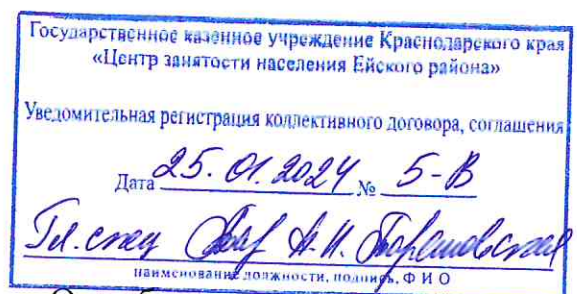 Государственное казенное учреждение Краснодарского края
«Центр занятости населения Ейского района»
Уведомительная регистрация коллективного договора, соглашения
Дата 25.01.2024 № 5-В
Гл. спец А.Н.
наименование должности, подпись, Ф И О